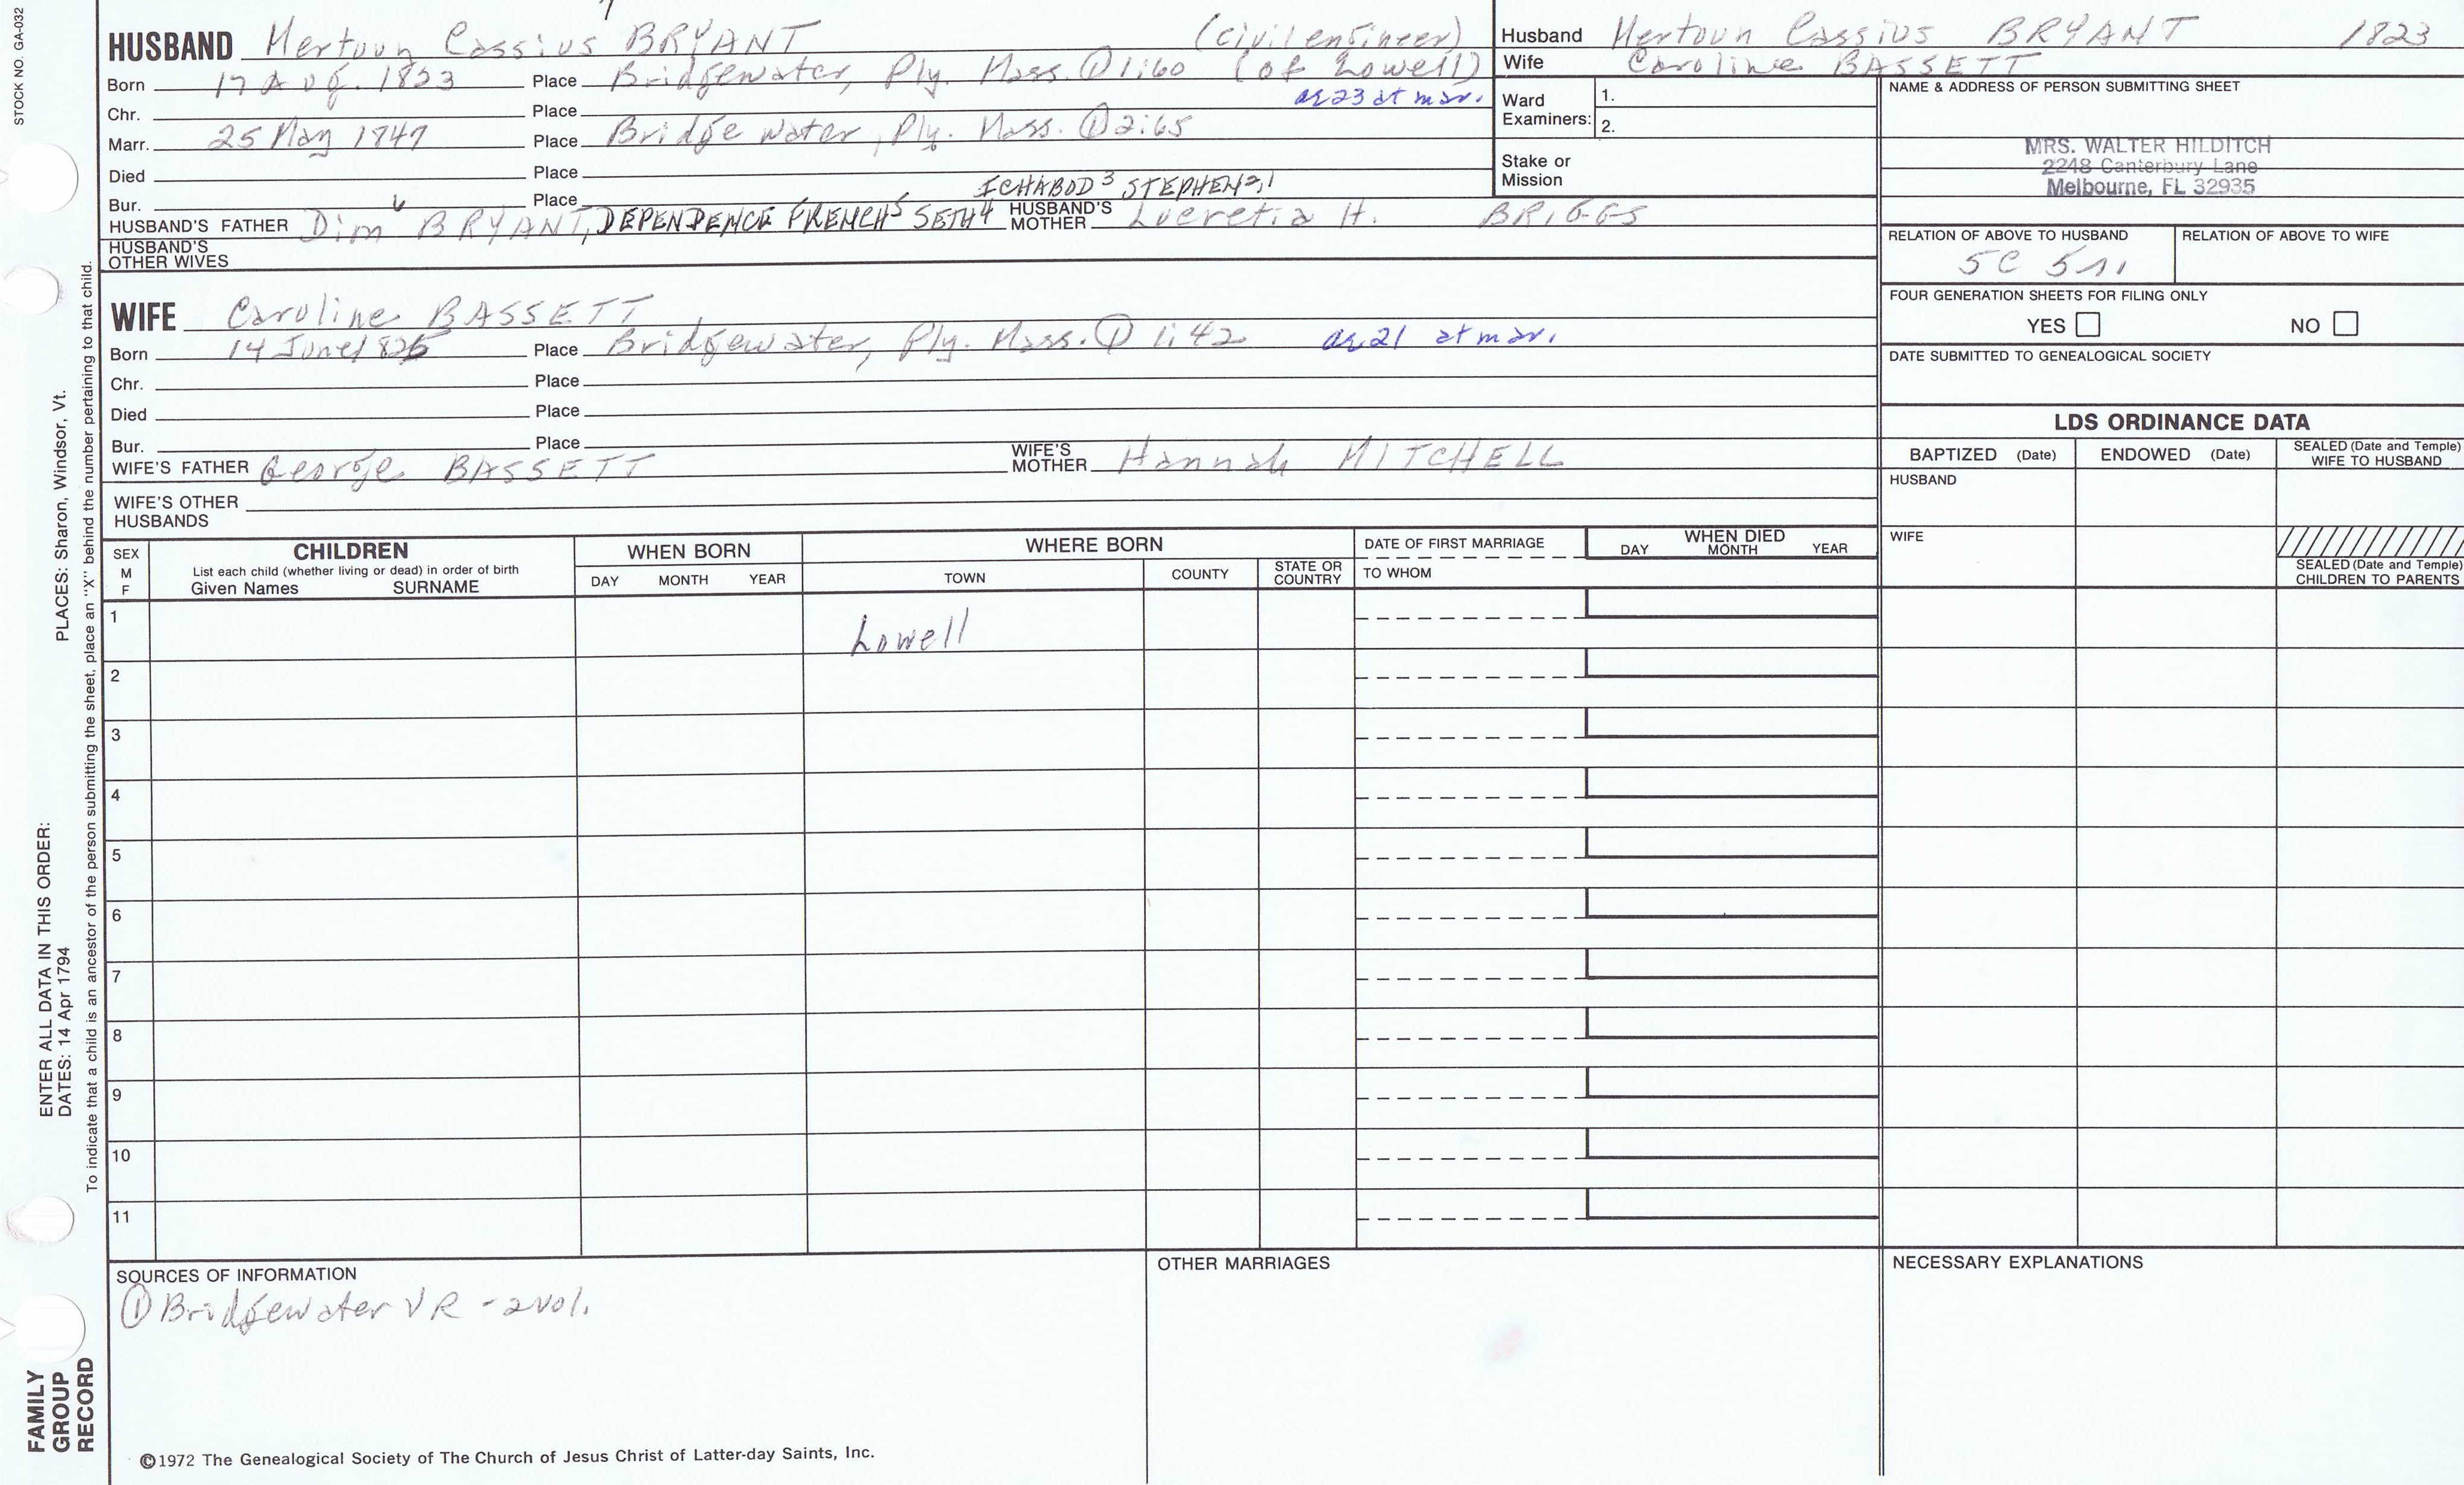 STOCK NO. GA-032
HUSBAND Mertoun Cassius BRYANT (civil engineer)
Born 17 Aug. 1823 Place Bridgewater, Ply. Mass. ① 1:60 (of Lowell)
Chr. Place ae 23 at mar.
Marr. 25 May 1847 Place Bridgewater, Ply. Mass. ① 2:65
Died Place
Bur. Place ICHABOD 3 STEPHEN 2,1
HUSBAND'S FATHER Dim 6 BRYANT, DEPENDENCE FRENCH 5 SETH 4 HUSBAND'S MOTHER Lucretia H. BRIGGS
HUSBAND'S OTHER WIVES
WIFE Caroline BASSETT
Born 14 June 1826 Place Bridgewater, Ply. Mass. ① 1:42 ae 21 at mar.
Chr. Place
Died Place
Bur. Place
WIFE'S FATHER George BASSETT WIFE'S MOTHER Hannah MITCHELL
WIFE'S OTHER HUSBANDS
Husband Mertoun Cassius BRYANT 1823
Wife Caroline BASSETT
Ward Examiners: 1.
2.
Stake or Mission
NAME & ADDRESS OF PERSON SUBMITTING SHEET
MRS. WALTER HILDITCH
2248 Canterbury Lane
Melbourne, FL 32935
RELATION OF ABOVE TO HUSBAND RELATION OF ABOVE TO WIFE
5C
FOUR GENERATION SHEETS FOR FILING ONLY
YES NO
DATE SUBMITTED TO GENEALOGICAL SOCIETY
LDS ORDINANCE DATA
BAPTIZED (Date) ENDOWED (Date) SEALED (Date and Temple) WIFE TO HUSBAND
HUSBAND
WIFE
SEALED (Date and Temple) CHILDREN TO PARENTS
SEX M F
CHILDREN
List each child (whether living or dead) in order of birth
Given Names SURNAME
WHEN BORN
DAY MONTH YEAR
WHERE BORN
TOWN COUNTY STATE OR COUNTRY
DATE OF FIRST MARRIAGE
TO WHOM
WHEN DIED
DAY MONTH YEAR
1 Lowell
2
3
4
5
6
7
8
9
10
11
SOURCES OF INFORMATION
① Bridgewater VR - 2 vol.
OTHER MARRIAGES
NECESSARY EXPLANATIONS
©1972 The Genealogical Society of The Church of Jesus Christ of Latter-day Saints, Inc.
FAMILY
GROUP
RECORD
ENTER ALL DATA IN THIS ORDER:
DATES: 14 Apr 1794
PLACES: Sharon, Windsor, Vt.
To indicate that a child is an ancestor of the person submitting the sheet, place an "X" behind the number pertaining to that child.